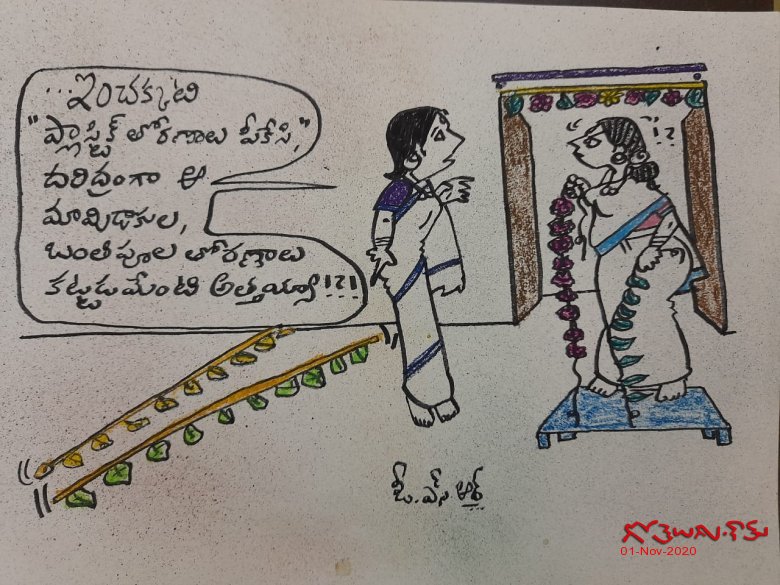 ...ఇంచక్కటి
"ప్లాస్టిక్ తోరణాలు పీకేసి,"
దరిద్రంగా ఆ
మామిడాకుల,
బంతిపూల తోరణాలు
కట్టుడుమేంటి అత్తయ్యా!?!
!?
పి.ఎస్.ఆర్
గోతెలుగు.కామ్
01-Nov-2020